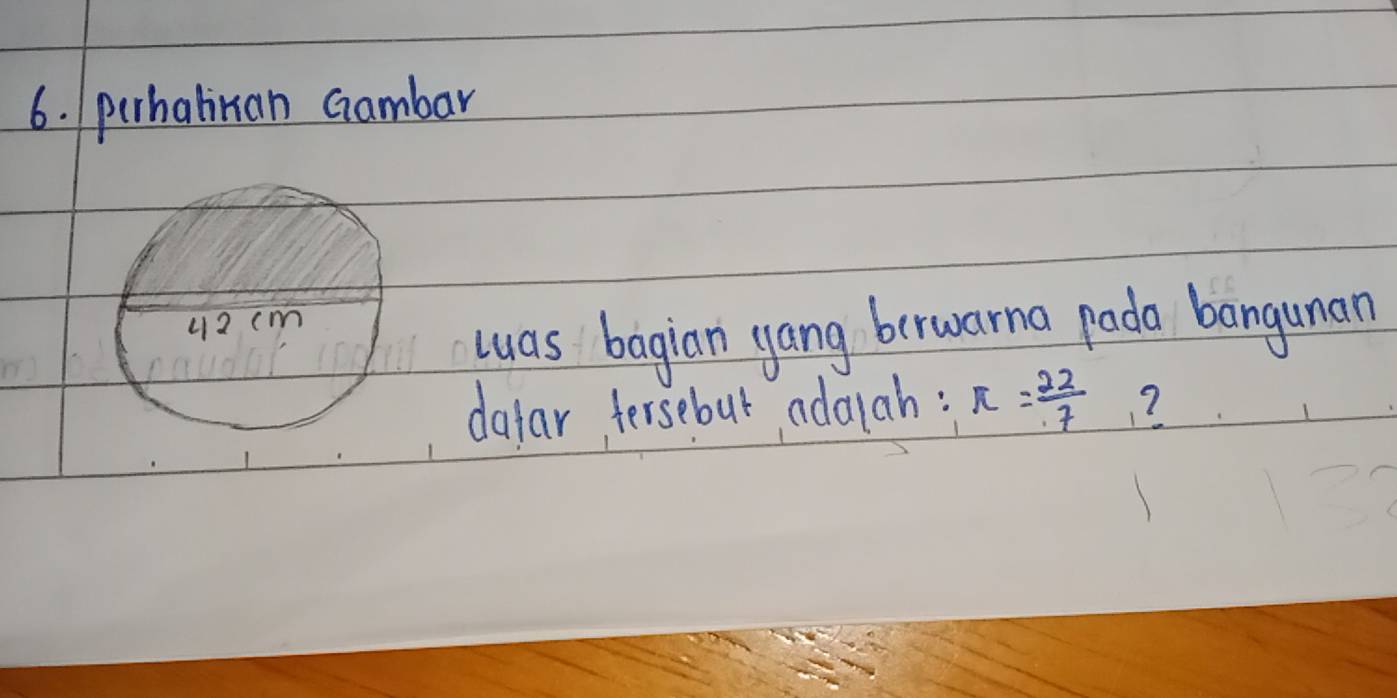 6. perhatikan Gambar
42 cm
Luas bagian yang berwarna pada bangunan
datar tersebut adalah : π = 22/7 ?